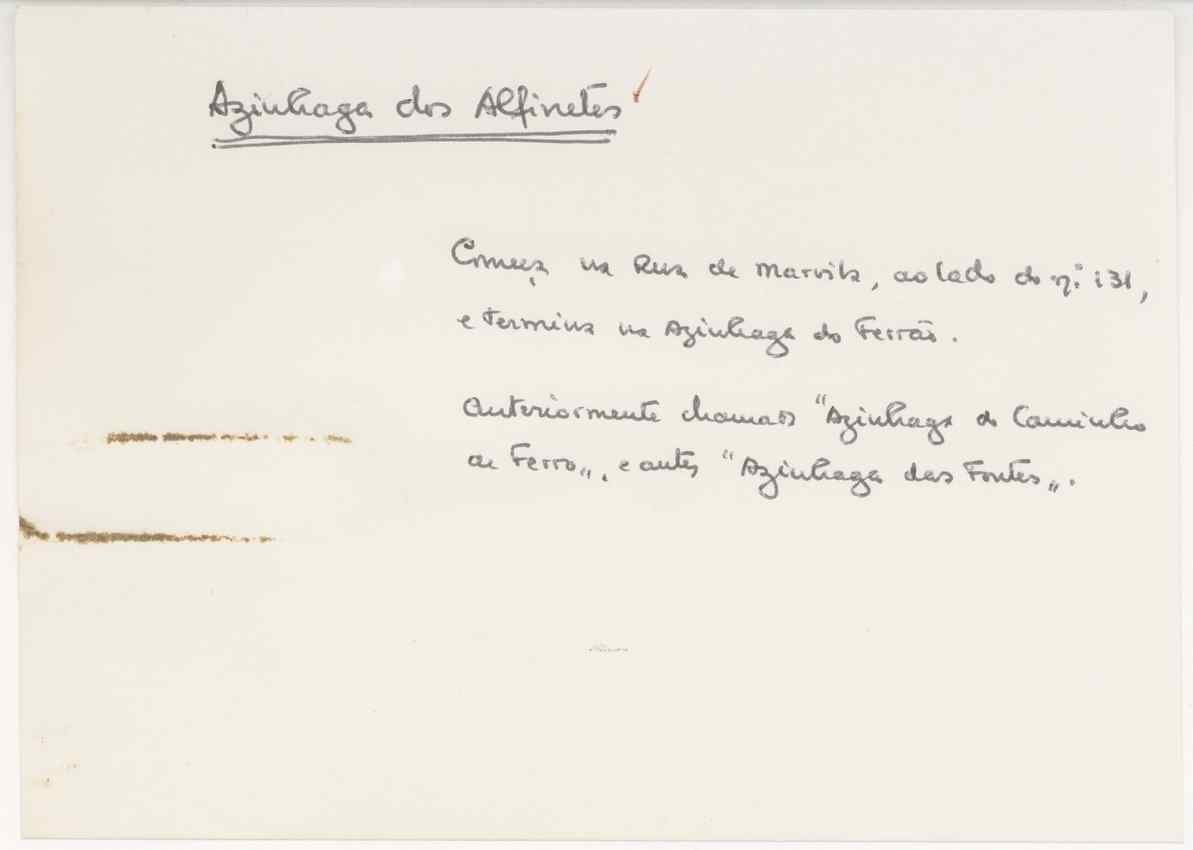 Azinhaga dos Alfinetes
Começa na Rua de Marvila, ao lado do nº 131,
e termina na Azinhaga do Ferrão.
Anteriormente chamada "Azinhaga do Caminho
de Ferro", e antes "Azinhaga das Fontes".